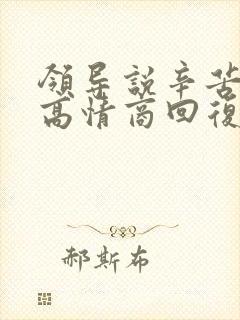 領导説辛苦
高情商回復
郝斯布